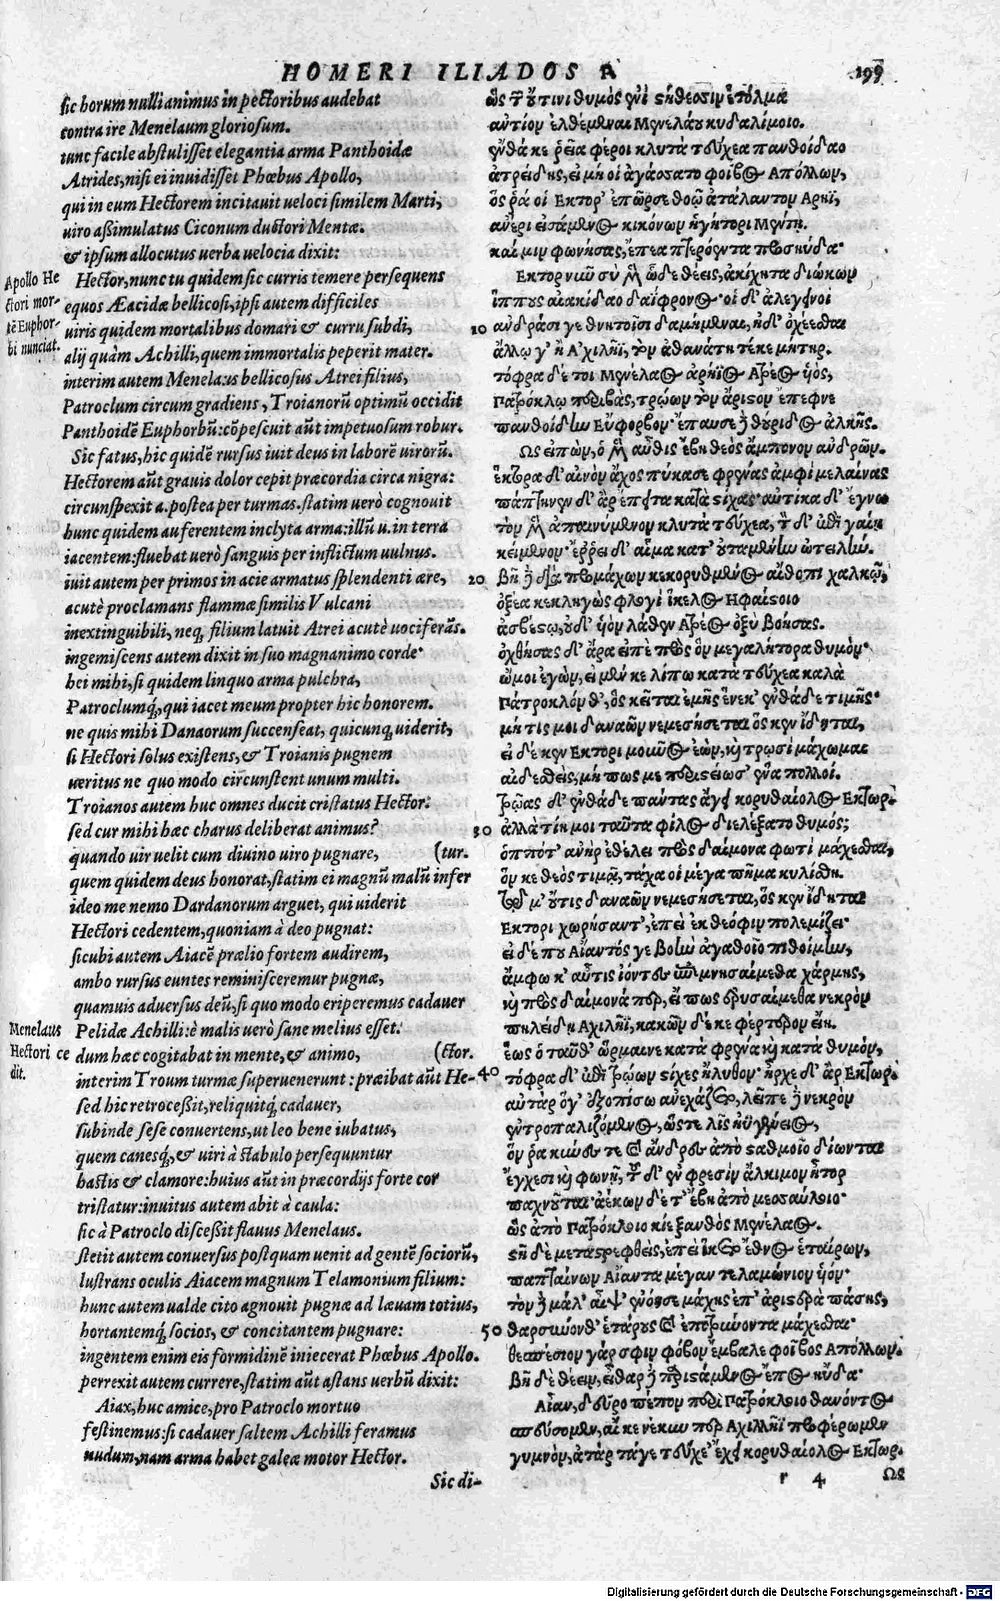 HOMERI ILIADOS Ρ 199
sic horum nulli animus in pectoribus audebat
contra ire Menelaum gloriosum.
tunc facile abstulisset elegantia arma Panthoidæ
Atrides, nisi ei inuidisset Phœbus Apollo,
qui in eum Hectorem incitauit ueloci similem Marti,
uiro assimulatus Ciconum ductori Mentæ.
& ipsum allocutus uerba uelocia dixit:
Apollo He
ctori mor-
tē Euphor-
bi nunciat.
Hector, nunc tu quidem sic curris temere persequens
equos Æacidæ bellicosi, ipsi autem difficiles
uiris quidem mortalibus domari & curru subdi,
alij quàm Achilli, quem immortalis peperit mater.
interim autem Menelaus bellicosus Atrei filius,
Patroclum circum gradiens, Troianorũ optimũ occidit
Panthoidē Euphorbũ: cōpescuit aũt impetuosum robur.
Sic fatus, hic quidē rursus iuit deus in laborē uirorũ.
Hectorem aũt grauis dolor cepit præcordia circa nigra:
circunspexit a. postea per turmas. statim uerò cognouit
hunc quidem auferentem inclyta arma: illũ u. in terra
iacentem: fluebat uerò sanguis per inflictum uulnus.
iuit autem per primos in acie armatus splendenti ære,
acutè proclamans flammæ similis Vulcani
inextinguibili, neq; filium latuit Atrei acutè uociferãs.
ingemiscens autem dixit in suo magnanimo corde:
hei mihi, si quidem linquo arma pulchra,
Patroclumq́;, qui iacet meum propter hic honorem.
ne quis mihi Danaorum succenseat, quicunq; uiderit,
si Hectori solus existens, & Troianis pugnem
ueritus ne quo modo circunstent unum multi.
Troianos autem huc omnes ducit cristatus Hector.
sed cur mihi hæc charus deliberat animus?
quando uir uelit cum diuino uiro pugnare, (tur.
quem quidem deus honorat, statim ei magnũ malũ infer
ideo me nemo Dardanorum arguet, qui uiderit
Hectori cedentem, quoniam à deo pugnat:
sicubi autem Aiacē prælio fortem audirem,
ambo rursus euntes reminisceremur pugnæ,
quamuis aduersus deũ, si quo modo eriperemus cadauer
Menelaus
Hectori ce
dit.
Pelidæ Achilli: è malis uerò sane melius esset:
dum hæc cogitabat in mente, & animo, (ctor.
interim Troum turmæ superuenerunt: præibat aũt He-
sed hic retrocessit, reliquitq́; cadauer,
subinde sese conuertens, ut leo bene iubatus,
quem canesq́;, & uiri à stabulo persequuntur
hastis & clamore: huius aũt in præcordijs forte cor
tristatur: inuitus autem abit à caula:
sic à Patroclo discessit flauus Menelaus.
stetit autem conuersus postquam uenit ad gentē sociorũ,
lustrans oculis Aiacem magnum Telamonium filium:
hunc autem ualde cito agnouit pugnæ ad læuam totius,
hortantemq́; socios, & concitantem pugnare:
ingentem enim eis formidinē iniecerat Phœbus Apollo.
perrexit autem currere, statim aũt astans uerbũ dixit:
Aiax, huc amice, pro Patroclo mortuo
festinemus: si cadauer saltem Achilli feramus
nudum, nam arma habet galeæ motor Hector.
Sic di-
ὣς τῶν οὔτινι θυμὸς ἐνὶ στήθεσσιν ἐτόλμα
αὐτίον ἐλθέμεναι Μενελάου κυδαλίμοιο.
ἔνθά κε ῥεῖα φέροι κλυτὰ τεύχεα πανθοίδαο
ἀτρείδης, εἰ μή οἱ ἀγάσσατο φοῖβος Απόλλων,
ὅς ῥά οἱ Εκτορ' ἐπῶρσε θοῷ ἀτάλαντον Αρηϊ,
ἀνέρι εἰσάμενος κικόνων ἡγήτορι Μέντῃ.
καί μιν φωνήσας, ἔπεα πτερόεντα προσηύδα·
Εκτορ νῦν σὺ μὲν ὧδε θέεις, ἀκίχητα διώκων
ἵππους αἰακίδαο δαΐφρονος· οἱ δ' ἀλεγεινοὶ
10 ἀνδράσι γε θνητοῖσι δαμήμεναι, ἠδ' ὀχέεσθαι
ἄλλῳ γ' ἢ Α'χιλῆϊ, τὸν ἀθανάτη τέκε μήτηρ.
τόφρα δέ τοι Μενέλαος ἀρήϊος Ατρέος ὑὸς,
Πατρόκλῳ περιβὰς, τρώων τὸν ἄριστον ἔπεφνε
πανθοίδην Εὔφορβον· ἔπαυσε δὲ θούριδος ἀλκῆς.
Ως εἰπὼν, ὁ μὲν αὖθις ἔβη θεὸς ἄμπονον ἀνδρῶν.
ἕκτορα δ' αἰνὸν ἄχος πύκασε φρένας ἀμφὶ μελαίνας
πάπτηνεν δ' ἂρ ἔπειτα κατὰ στίχας· αὐτίκα δ' ἔγνω
τὸν μὲν ἀπαινύμενον κλυτὰ τεύχεα, τὸν δ' ἐπὶ γαίῃ
κείμενον· ἔῤῥει δ' αἷμα κατ' οὐταμένην ὠτειλήν.
20 Βῆ δὲ διὰ προμάχων κεκορυθμένος αἴθοπι χαλκῷ,
ὀξέα κεκληγὼς φλογὶ ἴκελος Ηφαίστοιο
ἀσβέστῳ, οὐδ' ὑὸν λάθεν Ατρέος ὀξὺ βοήσας.
ὀχθήσας δ' ἄρα εἶπε πρὸς ὃν μεγαλήτορα θυμόν·
ὤμοι ἐγὼν, εἰ μέν κε λίπω κατὰ τεύχεα καλὰ
Πάτροκλόν θ', ὃς κεῖται ἐμῆς ἕνεκ' ἐνθάδε τιμῆς·
μή τίς μοι δαναῶν νεμεσήσεται ὅς κεν ἴδηται,
εἰ δέ κεν Εκτορι μοῦνος ἐὼν, καὶ τρωσὶ μάχωμαι
αἰδεσθεὶς, μή πώς με περιστείωσ' ἕνα πολλοί.
Τρῶας δ' ἐνθάδε πάντας ἄγει κορυθαίολος Εκτωρ.
30 ἀλλὰ τίη μοι ταῦτα φίλος διελέξατο θυμός;
ὁππότ' ἀνὴρ ἐθέλει πρὸς δαίμονα φωτὶ μάχεσθαι,
ὅν κε θεὸς τιμᾷ, τάχα οἱ μέγα πῆμα κυλίσθη.
τῷ μ' οὔτις δαναῶν νεμεσήσεται, ὅς κεν ἴδηται
Εκτορι χωρήσαντ', ἐπεὶ ἐκ θεόφιν πολεμίζει·
εἰ δέ που Αἴαντός γε βοὴν ἀγαθοῖο πυθοίμην,
ἄμφω κ' αὖτις ἰόντες ἐπιμνησαίμεθα χάρμης,
καὶ πρὸς δαίμονά περ, εἴ πως ἐρυσαίμεθα νεκρὸν
πηλείδῃ Αχιλῆϊ, κακῶν δέ κε φέρτερον εἴη.
ἕως ὁ ταῦθ' ὥρμαινε κατὰ φρένα καὶ κατὰ θυμὸν,
40 τόφρα δ' ἐπὶ Τρώων στίχες ἤλυθον· ἦρχε δ' ἂρ Εκτωρ.
αὐτὰρ ὅγ' ἐξοπίσω ἀνεχάζετο, λεῖπε δὲ νεκρὸν
ἐντροπαλιζόμενος, ὥστε λὶς ἠϋγένειος,
ὅν ῥα κύνες τε καὶ ἄνδρες ἀπὸ σταθμοῖο δίωνται
ἔγχεσι καὶ φωνῇ, τοῦ δ' ἐν φρεσὶν ἄλκιμον ἦτορ
παχνοῦται· ἀέκων δέ τ' ἔβη ἀπὸ μεσσαύλοιο·
ὣς ἀπὸ Πατρόκλοιο κίε ξανθὸς Μενέλαος.
στῆ δὲ μεταστρεφθεὶς, ἐπεὶ ἵκετο ἔθνος ἑταίρων,
παπταίνων Αἴαντα μέγαν τελαμώνιον ὑόν·
τὸν δὲ μάλ' αἶψ' ἐνόησε μάχης ἐπ' ἀριστερὰ πάσης,
50 θαρσύνονθ' ἑτάρους καὶ ἐποτρύνοντα μάχεσθαι·
θεσπέσιον γάρ σφιν φόβον ἔμβαλε φοῖβος Απόλλων.
Βῆ δὲ θέειν, εἶθαρ δὲ παριστάμενος ἔπος ηὔδα·
Αἶαν, δεῦρο πέπον περὶ Πατρόκλοιο θανόντος
σπεύσομεν, αἴ κε νέκυν περ Αχιλλῆϊ προφέρωμεν
γυμνὸν, ἀτὰρ τάγε τεύχε' ἔχει κορυθαίολος Εκτωρ.
r 4 Ως
Digitalisierung gefördert durch die Deutsche Forschungsgemeinschaft - DFG